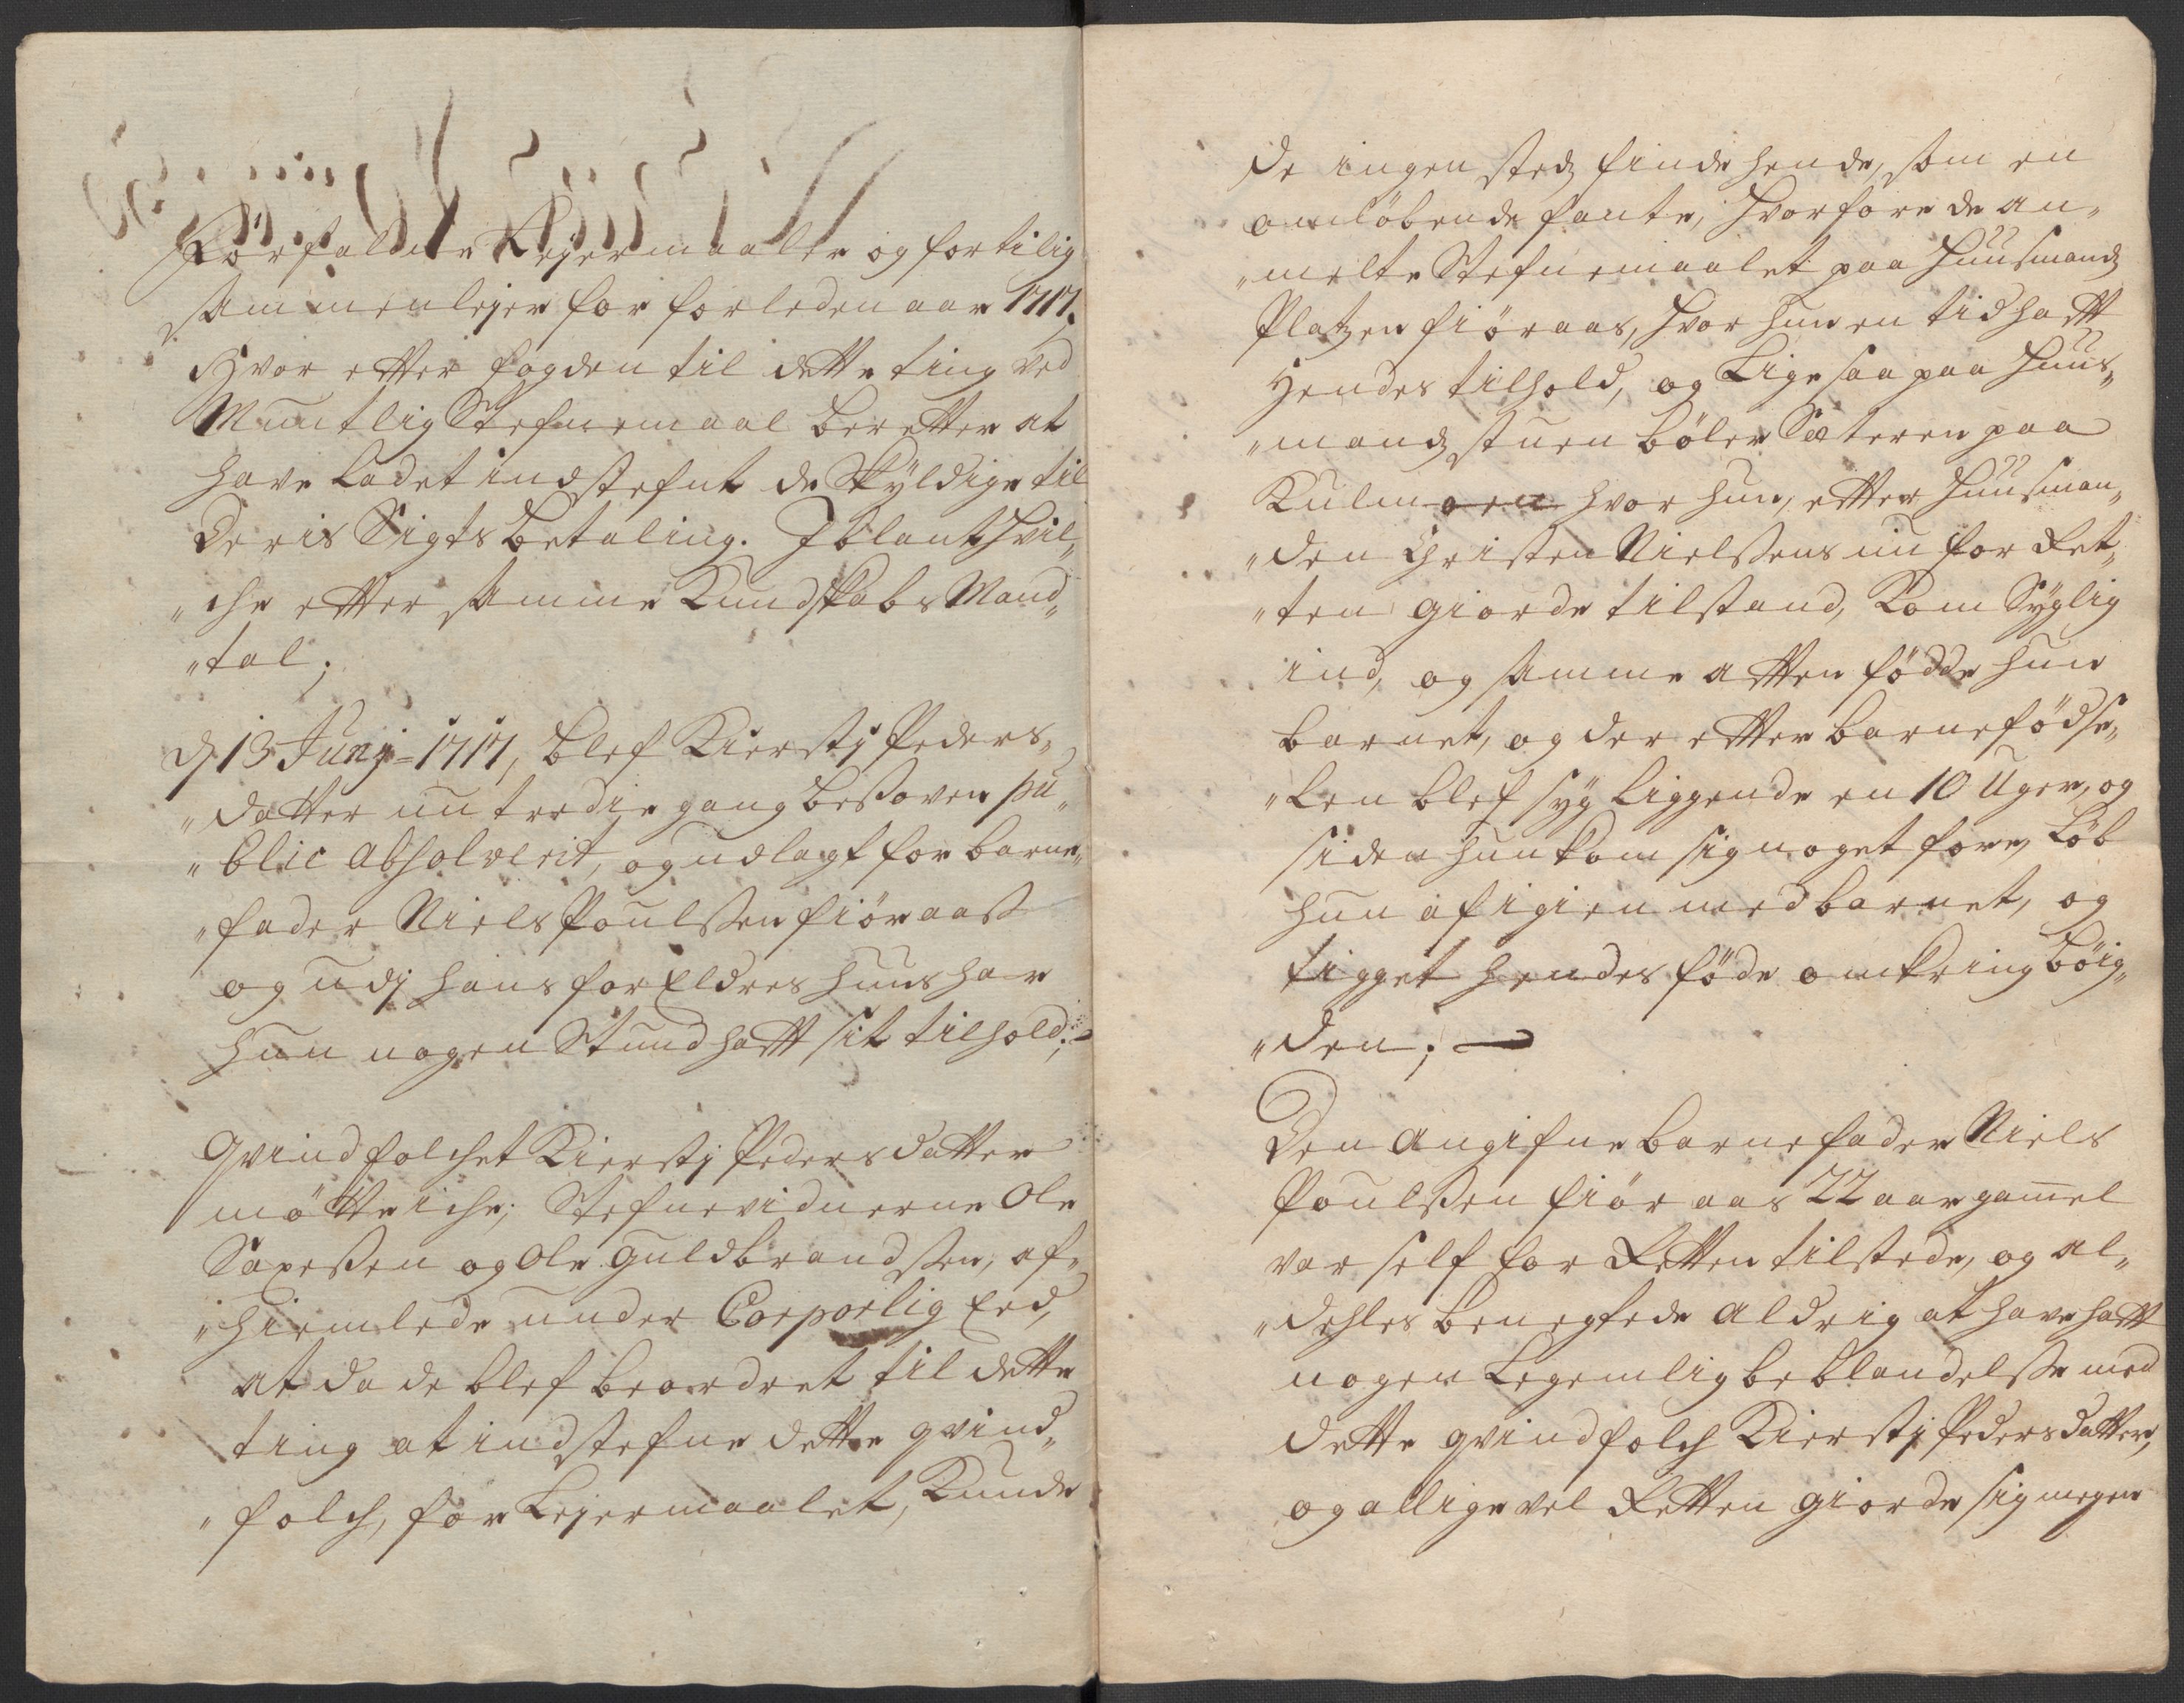 Forfaldene Lejermaaler og for tilig
sammenlejer for forleden aar 1717.
Hvor etter fogden til dette ting ved
Muntlig Stefnemaal beretter at
have ladet indstefnt de Skÿldige til
deris Sigts betaling. Iblant Hvil„
„che etter samme Kundskabs Mand„
„tal;
d 13 Junj = 1717, blef Kierstj Peders„
„datter nu tredie gang besoven pu„
„blic absolverit, og udlagt for barne„
„fader Niels Poulssen fiöraass
og udj hans for Eldres huus har
hun nogen Stund hafft sit tilhold;
Qvindfolchet Kierstj Pedersdatter
mötte iche; Stefnevidnerne Ole
Saxessen og Ole Guldbrandssen, af„
„hiemlede under Corporlig Eed,
at da de blef beordret til dette
ting at indstefne dette qvind„
„folch, for Lejermaalet, Kunde
de ingen stedz finde hende, som en
omlöbende fante, Hvorfore de an„
„melte Stefnemaalet paa Huusmandz
Platzen fiöraas, hvor hun en tid hafft
Hendes tilhold, og Lige saa paa Huus„
„mandz stuen böler Sæteren paa
Kulmoen hvor hun, etter Huusman„
„den Christen Nielssens nu for Ret„
„ten giorde tilstand, Kom Sÿglig
ind, og samme atten födde hun
barnet, og der etter barnefödse„
„len blef sÿg liggende en 10 Uger, og
siden hun kom sig noget fore, Löb
hun af igien med barnet, og
tigget hendes föde omkring böig„
„den;
Den angifne barnefader Niels
Poulssen fiöraas 22 aar gam̅el
var self for Retten tilstede, og al„
„dehles benegtede aldrig at have hafft
nogen Legemlig beblandelsse med
dette qvindfolch Kierstj Pedersdatter,
og alligevel Retten giorde sig megen